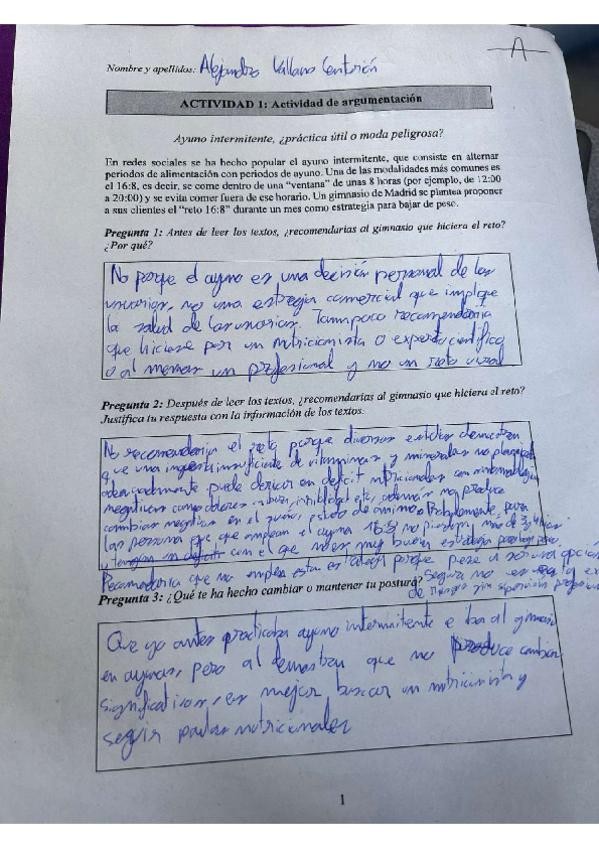 A
Nombre y apellidos: Alejandro Vallano Centurión
ACTIVIDAD 1: Actividad de argumentación
Ayuno intermitente, ¿práctica útil o moda peligrosa?
En redes sociales se ha hecho popular el ayuno intermitente, que consiste en alternar
periodos de alimentación con periodos de ayuno. Una de las modalidades más comunes es
el 16:8, es decir, se come dentro de una "ventana" de unas 8 horas (por ejemplo, de 12:00
a 20:00) y se evita comer fuera de ese horario. Un gimnasio de Madrid se plantea proponer
a sus clientes el "reto 16:8" durante un mes como estrategia para bajar de peso.
Pregunta 1: Antes de leer los textos, ¿recomendarías al gimnasio que hiciera el reto?
¿Por qué?
No porque el ayuno es una decisión personal de los
usuarios, no una estrategia comercial que implique
la salud de los usuarios. Tampoco recomendaria
que hiciese por un nutricionista o experto científico
o al menos un profesional y no un reto viral
Pregunta 2: Después de leer los textos, ¿recomendarías al gimnasio que hiciera el reto?
Justifica tu respuesta con la información de los textos.
No recomendaria el reto porque diversos estudios demuestran
que una ingesta insuficiente de vitaminas y minerales no
adecuadamente puede derivar en deficit nutricionales con
negativas como dolores irritabilidad etc, ademas no produce
cambios negativos en el sueño, estado de animo. Probablemente, para
las personas que que emplean el ayuno 16:8 no pierden mas de 3,
y tengan un deficit con el que no es muy buena estrategia
Recomendaria que no emplea esta estrategia porque pese a ser una opción
segura no es
de riesgos sin supervisión
Pregunta 3: ¿Qué te ha hecho cambiar o mantener tu postura?
Que yo antes practicaba ayuno intermitente e iba al gimnasio
en ayunas, pero al demostrar que no produce cambios
significativos, es mejor buscar un nutricionista y
seguir pautas nutricionales
1